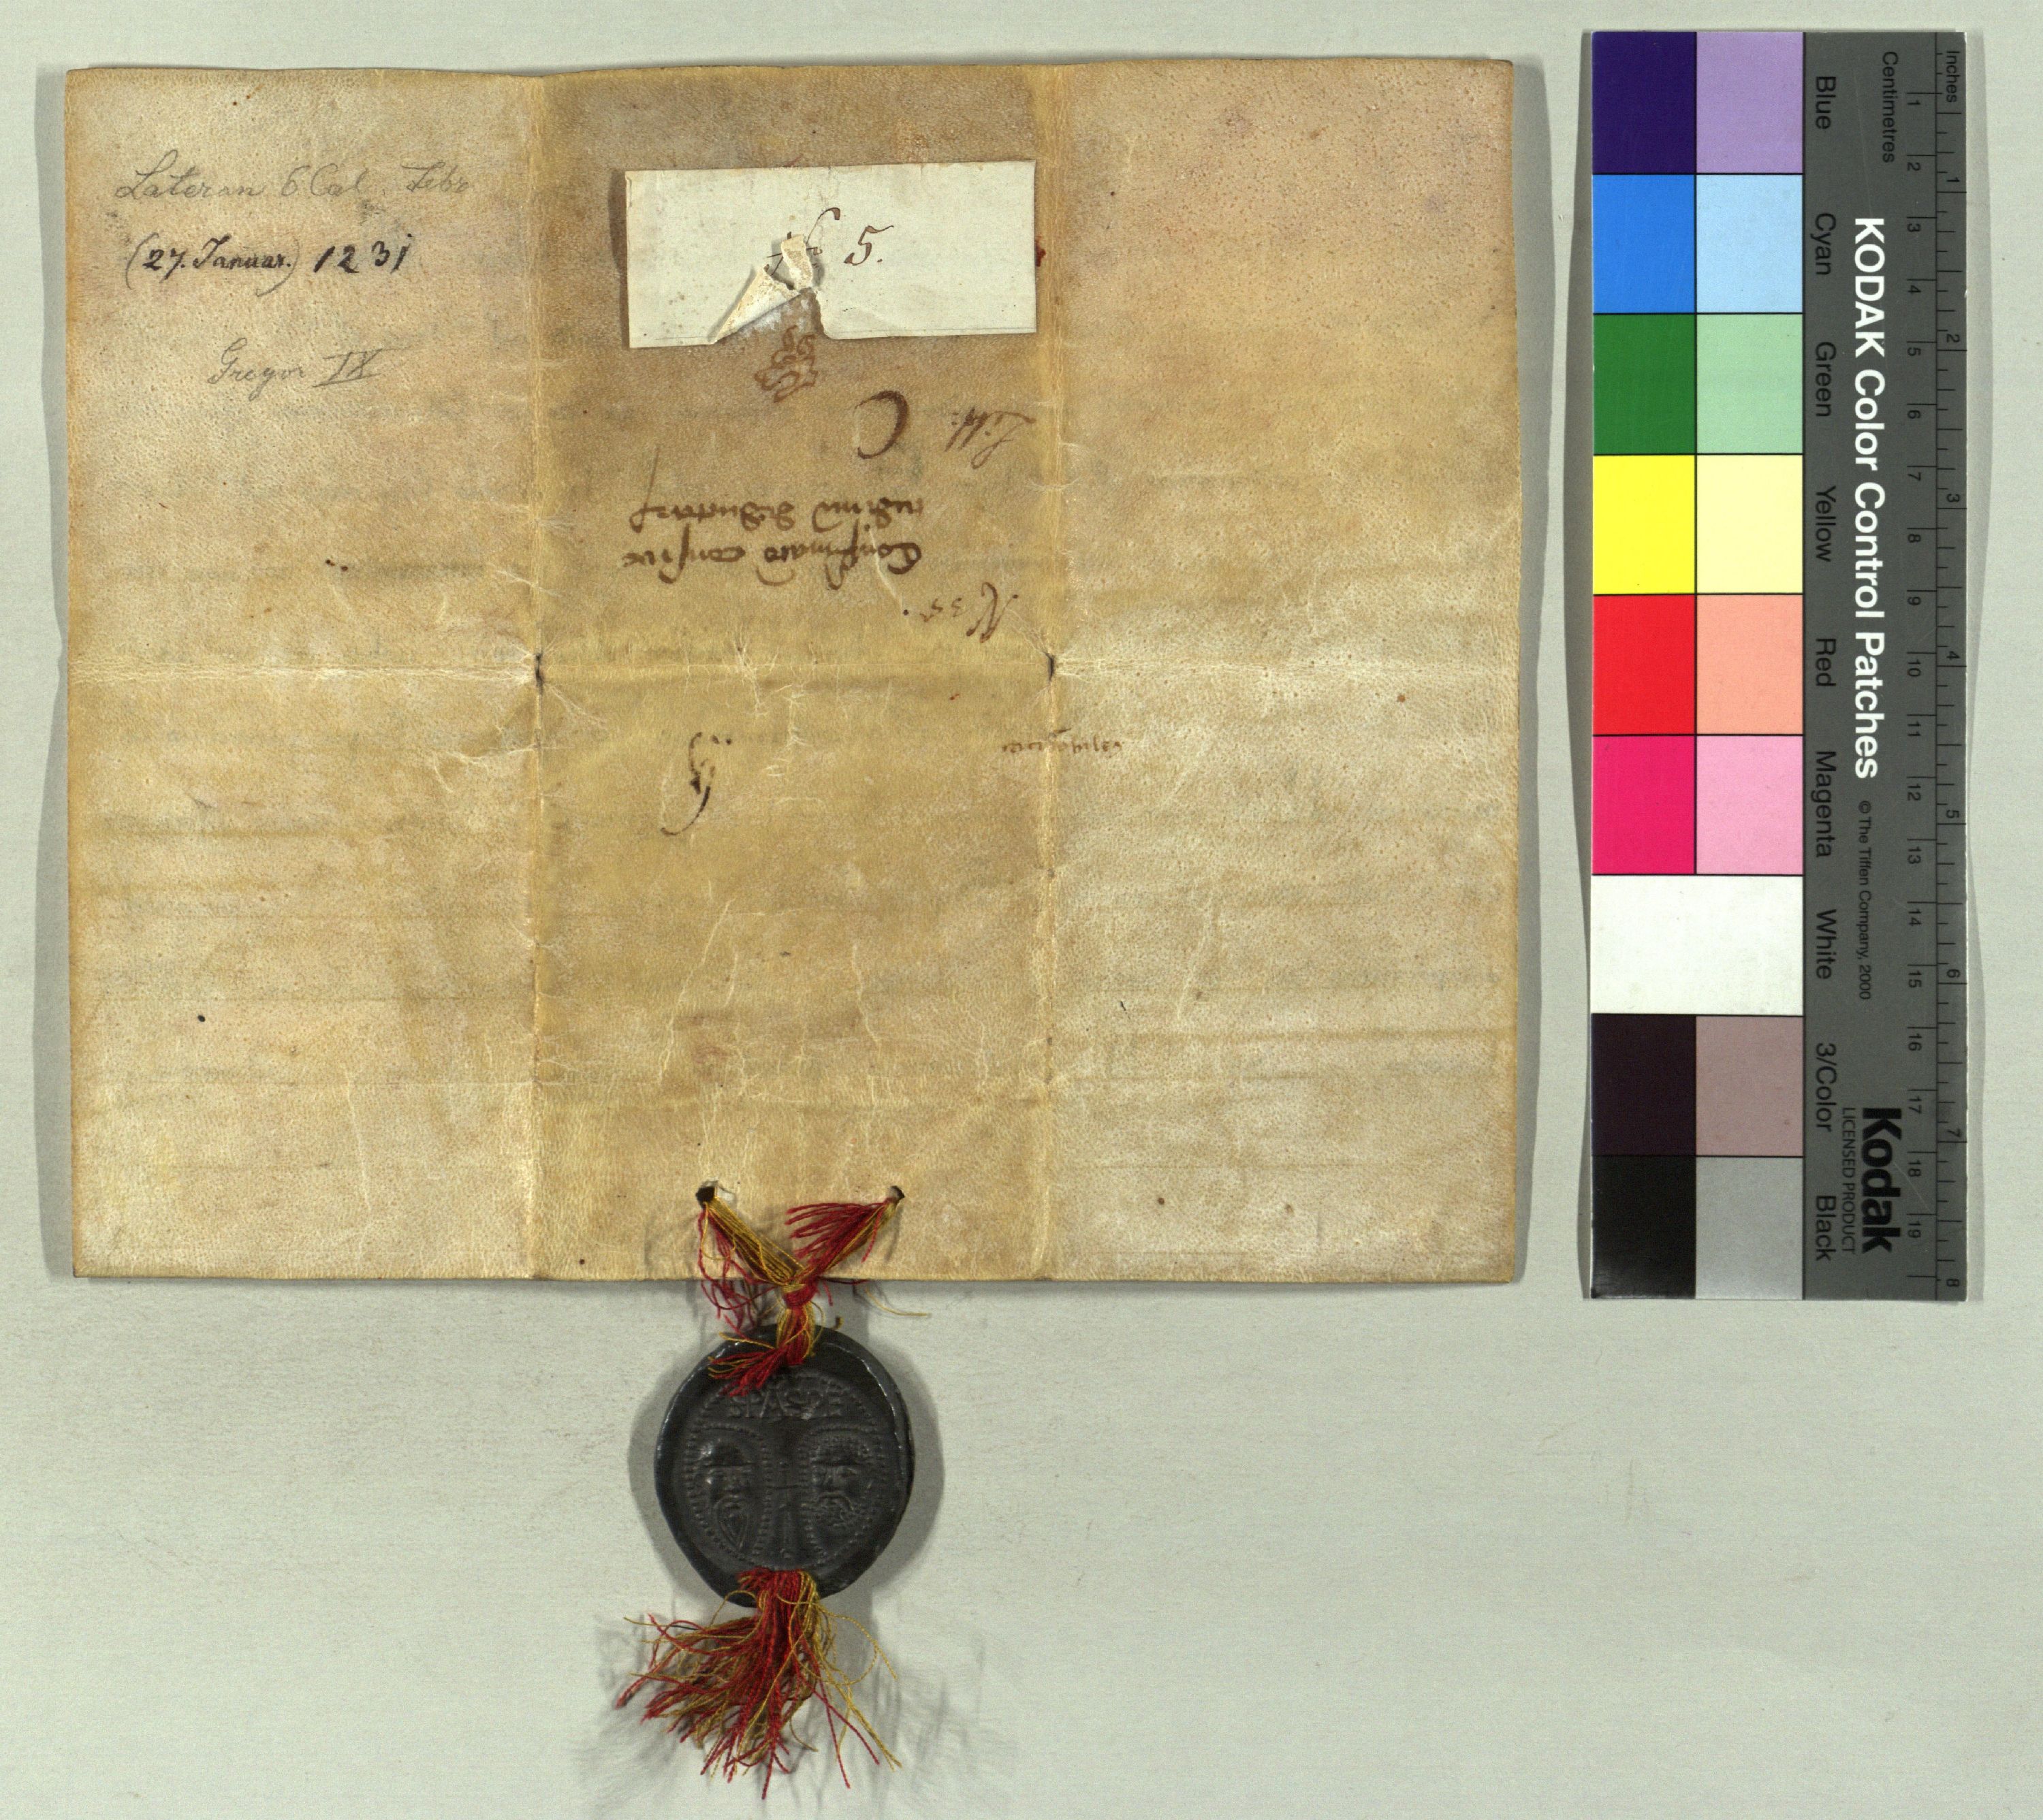 Lateran 6 Cal. Febr
(27. Januar.) 1231
Gregor IX
5.
Litt. C
N 35.
SPASPE
KODAK Color Control Patches
© The Tiffen Company, 2000
Kodak
LICENSED PRODUCT
Blue
Cyan
Green
Yellow
Red
Magenta
White
3/Color
Black
Inches
1 2 3 4 5 6 7 8
Centimetres
1 2 3 4 5 6 7 8 9 10 11 12 13 14 15 16 17 18 19